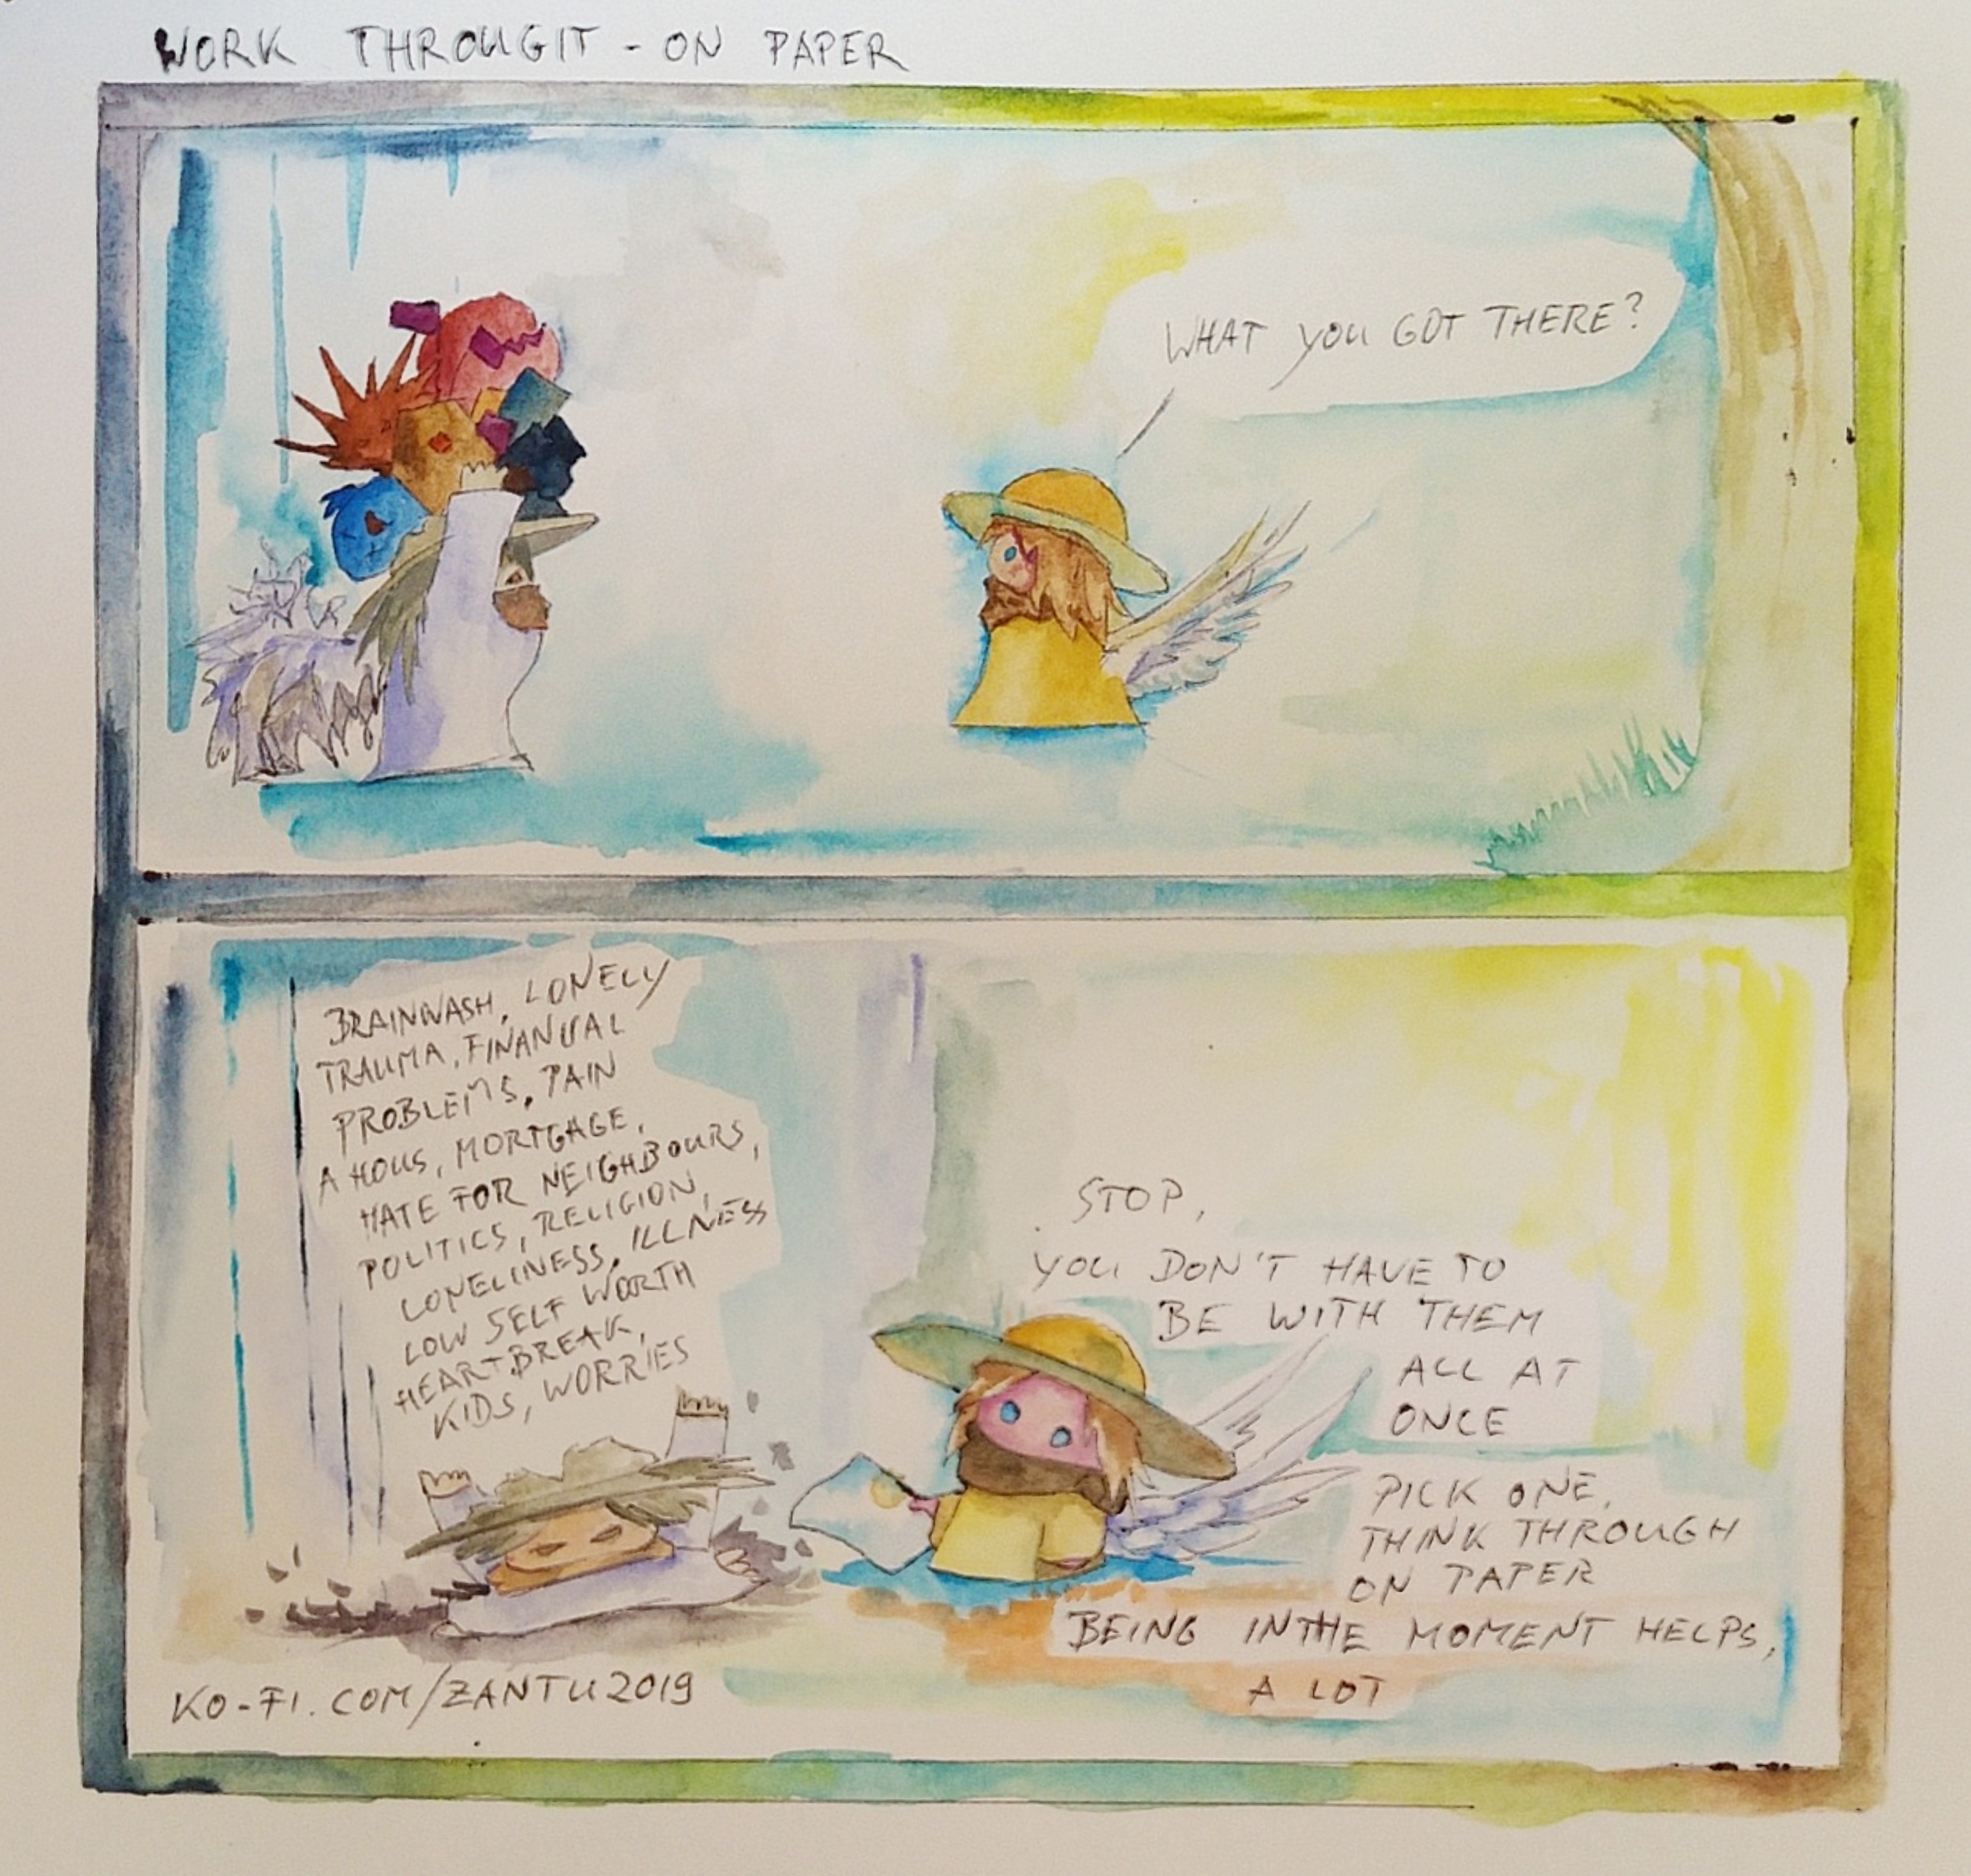 WORK THROUGIT - ON PAPER
WHAT YOU GOT THERE?
BRAINWASH, LONELY
TRAUMA, FINANCIAL
PROBLEMS, PAIN
A HOUS, MORTGAGE,
HATE FOR NEIGHBOURS,
POLITICS, RELIGION,
LONELINESS, ILLNESS
LOW SELF WORTH
HEARTBREAK,
KIDS, WORRIES
STOP,
YOU DON'T HAVE TO
BE WITH THEM
ALL AT
ONCE
PICK ONE,
THINK THROUGH
ON PAPER
BEING IN THE MOMENT HELPS,
A LOT
KO-FI.COM/ZANTU2019